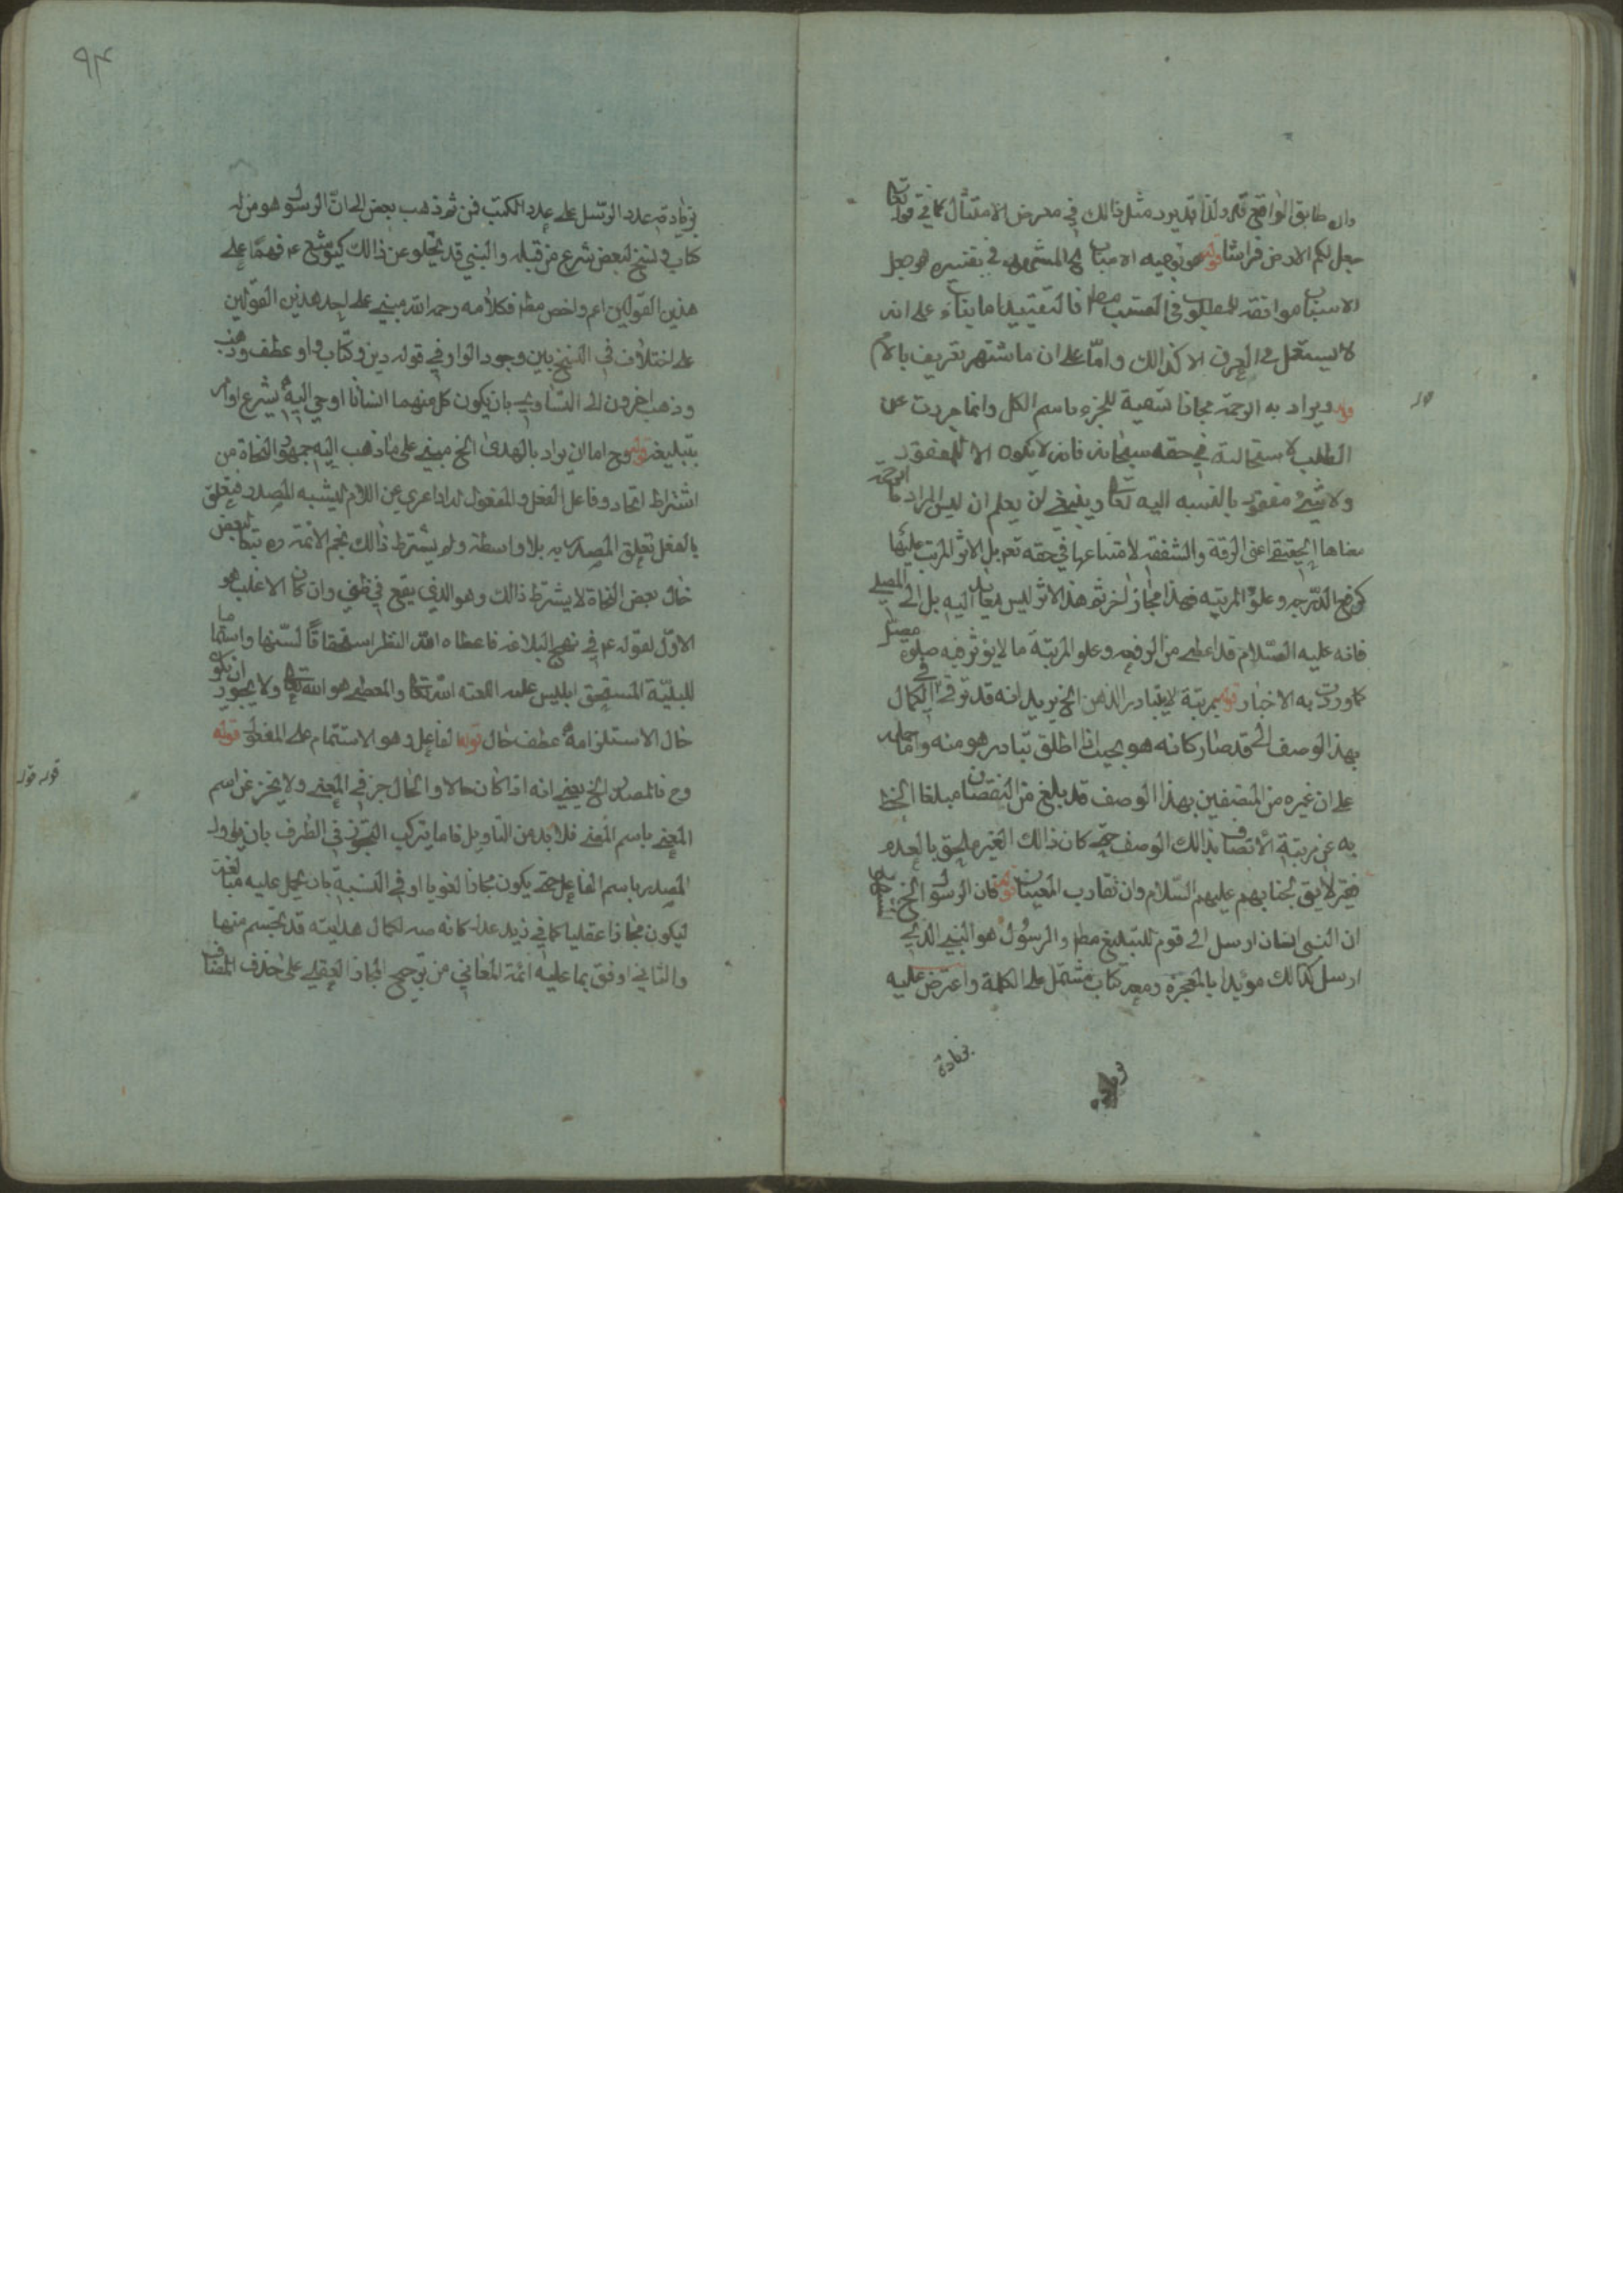 وان طابق الواقع قوله ولذا قد يرد مثل ذالك في معرض الامتثال كما في قوله تعالى
جعل لكم الارض فراشا قوله هو توجيه الاسباب الخ المشهور في تفسيره هو جعل
الاسباب موافقة للمطلوب في التسبب مطلقا فالتقييد اما بناء على انه
لا يستعمل في العرف الا كذالك واما على ان ما اشتهر تعريف بالاعم
قوله ويراد به الرحمة مجازا تسمية للجزء باسم الكل وانما جردت عن
الطلب لاستحالته في حقه سبحانه فانه لا يكون الا للمفقود
ولا شيء مفقود بالنسبه اليه تعالى وينبغي ان يعلم ان ليس المراد بالرحمة
معناها الحقيقي اعني الرقة والشفقة لامتناعها في حقه تعالى بل الاثر المرتب عليها
كرفع الدرجه وعلو المرتبه فهذا مجاز اخر ثم هذا الاثر ليس بعائد اليه بل الى المصلي
فانه عليه السلام قد اعطي من الرفعه وعلو المرتبة ما لا يؤثر فيه صلوة مصل
كما وردت به الاخبار قوله بمرتبة لا يتبادر الذهن الخ يريد انه قد ترقى في الكمال
بهذا الوصف الى حد صار كانه هو بحيث اذا اطلق تبادر هو منه واما حمله
على ان غيره من المتصفين بهذا الوصف قد بلغ من النقصان مبلغا انحط
به عن مرتبة الاتصاف بذالك الوصف حتى كان ذالك الغير ملحق بالعدم
فغير لائق بجنابهم عليهم السلام وان تقارب المعنيان قوله فان الرسول الخ
ان النبي انسان ارسل الى قوم للتبليغ مطلقا والرسول هو النبي الذي
ارسل كذالك مؤيدا بالمعجزة ومعه كتاب مشتمل على الكلمة واعترض عليه
بزيادة
٩٤
بزيادة عدد الرسل على عدد الكتب فمن ثم ذهب بعض الى ان الرسول هو من له
كتاب او نسخ لبعض شرع من قبله والنبي قد يخلو عن ذالك كيوشع ع فهما على
هذين القولين اعم واخص مطلقا فكلامه رحمه الله مبني على احد هذين القولين
على اختلاف في النسخ بين وجود الواو في قوله دين وكتاب واو عطف وذهب
وذهب اخرون الى التساوي بان يكون كل منهما انسانا اوحي اليه بشرع او امر
بتبليغه قوله وح اما ان يراد بالهدى الخ مبني على ما ذهب اليه جمهور النحاة من
اشتراط اتحاد فاعل الفعل والمفعول له اذا عري عن اللام ليشبه المصدر فيتعلق
بالفعل تعلق المصدر به بلا واسطة ولم يشترط ذالك نجم الائمة ره تبعا لبعض
قال بعض النحاة لا يشترط ذالك وهو الذي يقع في ظني وان كان الاغلب هو
الاول لقوله ع في نهج البلاغه فاعطاه الله النظرة استحقاقا للسخطه واستتماما
للبلية المستحق ابليس عليه اللعنه الله تعالى والمعطي هو الله تعالى ولا يجوز ان يكون
حال الاستلزامه عطف حال قوله لفاعل وهو الاستتمام على المفعول قوله
وح فالمصدر الخ يعني انه اذا كان حالا والحال جز في المعنى ولا يخبر عن اسم
المعنى باسم المعنى فلا بد من التاويل فاما يرتكب التجوز في الطرف بان يؤول
المصدر باسم الفاعل حتى يكون مجازا لغويا او في النسبة بان يحمل عليه مبالغة
ليكون مجازا عقليا كما في زيد عدل كانه صلى لكمال هدايته قد تجسم منها
والثاني اوفق بما عليه ائمة المعاني من ترجيح المجاز العقلي على حذف المضاف
قوله قوله